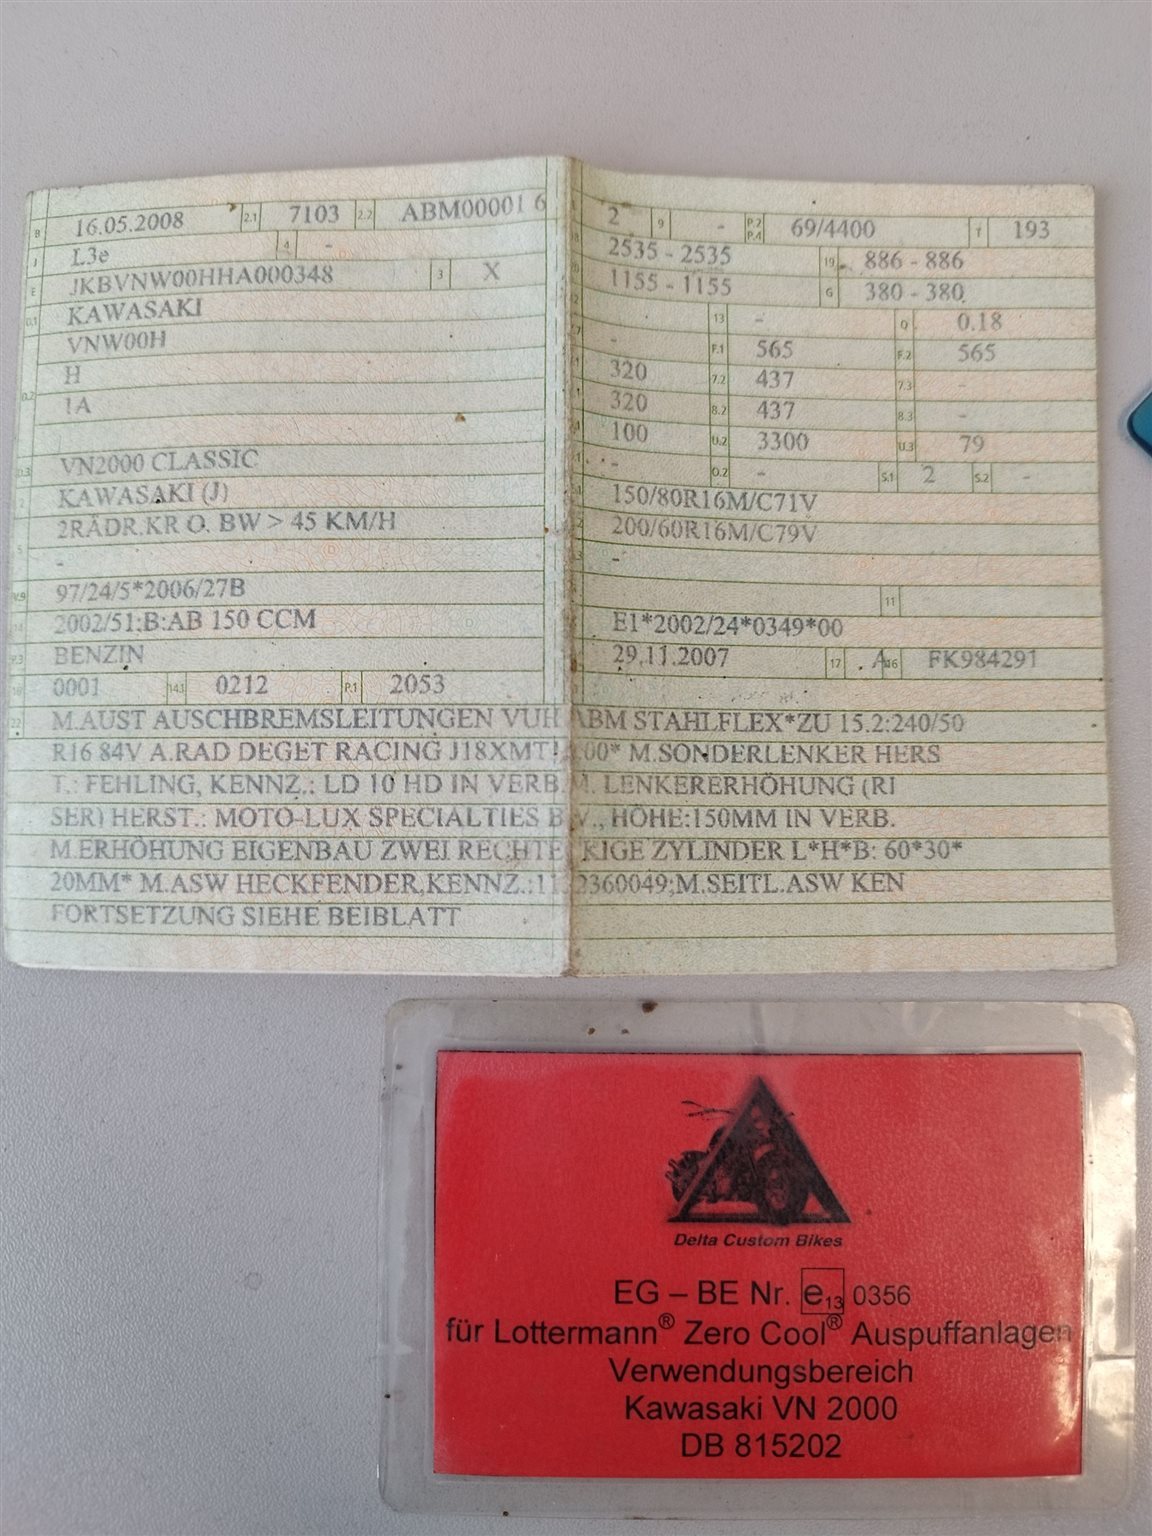 B 16.05.2008 2.1 7103 2.2 ABM00001 6
J L3e 4 -
E JKBVNW00HHA000348 3 X
D.1 KAWASAKI
VNW00H
D.2 H
1A
D.3 VN2000 CLASSIC
2 KAWASAKI (J)
5 2RÄDR.KR O. BW > 45 KM/H
-
V.9 97/24/5*2006/27B
14 2002/51;B:AB 150 CCM
P.3 BENZIN
10 0001 14.1 0212 P.1 2053
2 9 - P.2 P.4 69/4400 T 193
18 2535 - 2535 19 886 - 886
20 1155 - 1155 G 380 - 380
13 - Q 0.18
- F.1 565 F.2 565
320 7.2 437 7.3 -
320 8.2 437 8.3 -
100 U.2 3300 U.3 79
- O.2 - S.1 2 S.2 -
150/80R16M/C71V
200/60R16M/C79V
-
11
E1*2002/24*0349*00
29.11.2007 17 A 16 FK984291
22 M.AUST AUSCHBREMSLEITUNGEN VUH ABM STAHLFLEX*ZU 15.2:240/50
R16 84V A.RAD DEGET RACING J18XMT! .00* M.SONDERLENKER HERS
T.: FEHLING, KENNZ.: LD 10 HD IN VERB.M. LENKERERHÖHUNG (RI
SER) HERST.: MOTO-LUX SPECIALTIES B.V., HÖHE:150MM IN VERB.
M.ERHÖHUNG EIGENBAU ZWEI RECHTECKIGE ZYLINDER L*H*B: 60*30*
20MM* M.ASW HECKFENDER,KENNZ.:1132360049;M.SEITL.ASW KEN
FORTSETZUNG SIEHE BEIBLATT
Delta Custom Bikes
EG – BE Nr. e13 0356
für Lottermann® Zero Cool® Auspuffanlagen
Verwendungsbereich
Kawasaki VN 2000
DB 815202